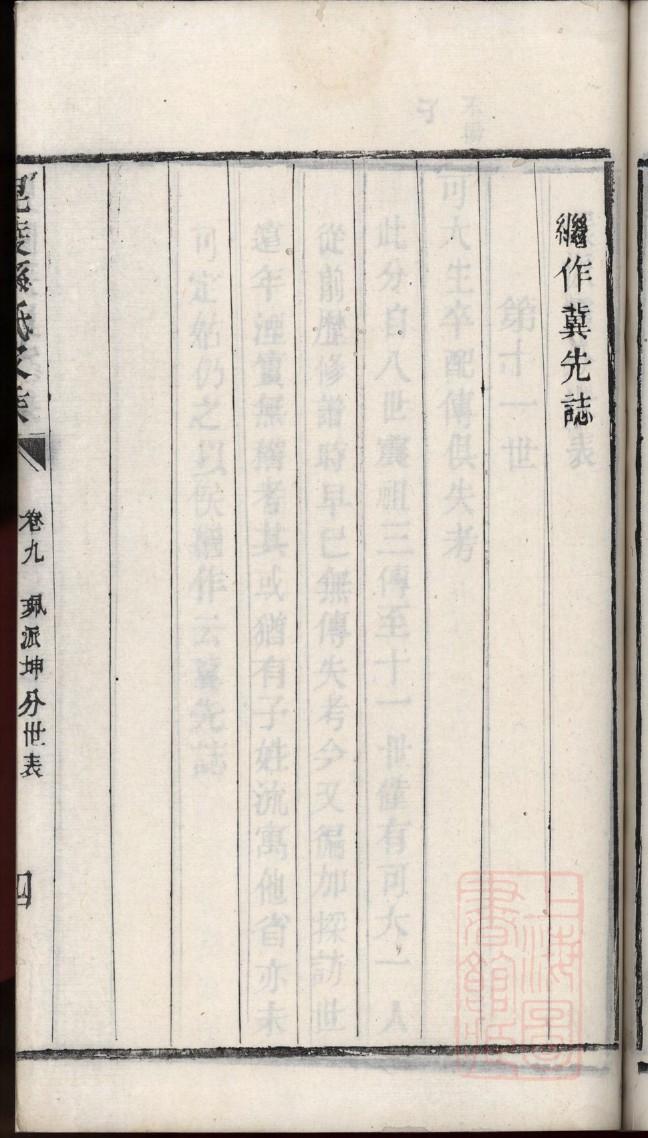 繼作冀先誌
氏
卷九 珮派坤分世表
四
上海圖書館藏
第十一世
可大生卒配傳俱失考
此分自八世震祖三傳至十一世僅有可大一人
從前歷修譜時早已無傳失考今又徧加探訪世
遠年湮實無稽考其或猶有子姓流寓他省亦未
可定姑仍之以俟繼作云冀先誌